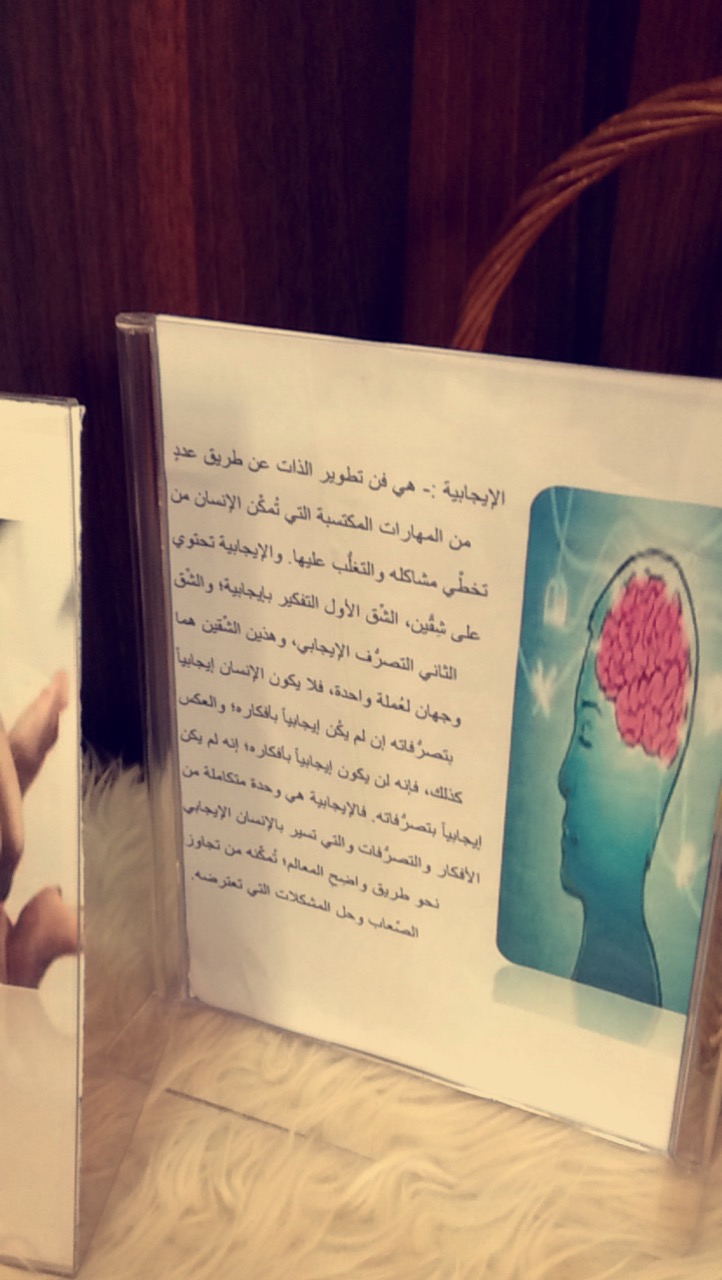 الإيجابية :- هي فن تطوير الذات عن طريق عددٍ
من المهارات المكتسبة التي تُمكّن الإنسان من
تخطّي مشاكله والتغلُّب عليها. والإيجابية تحتوي
على شِقَّين، الشّق الأول التفكير بإيجابية؛ والشّق
الثاني التصرُّف الإيجابي، وهذين الشّقين هما
وجهان لعُملة واحدة، فلا يكون الإنسان إيجابياً
بتصرُّفاته إن لم يكُن إيجابياً بأفكاره؛ والعكس
كذلك، فإنه لن يكون إيجابياً بأفكاره؛ إنه لم يكن
إيجابياً بتصرُّفاته. فالإيجابية هي وحدة متكاملة من
الأفكار والتصرُّفات والتي تسير بالإنسان الإيجابي
نحو طريق واضح المعالم؛ تُمكّنه من تجاوز
الصّعاب وحل المشكلات التي تعترضه.